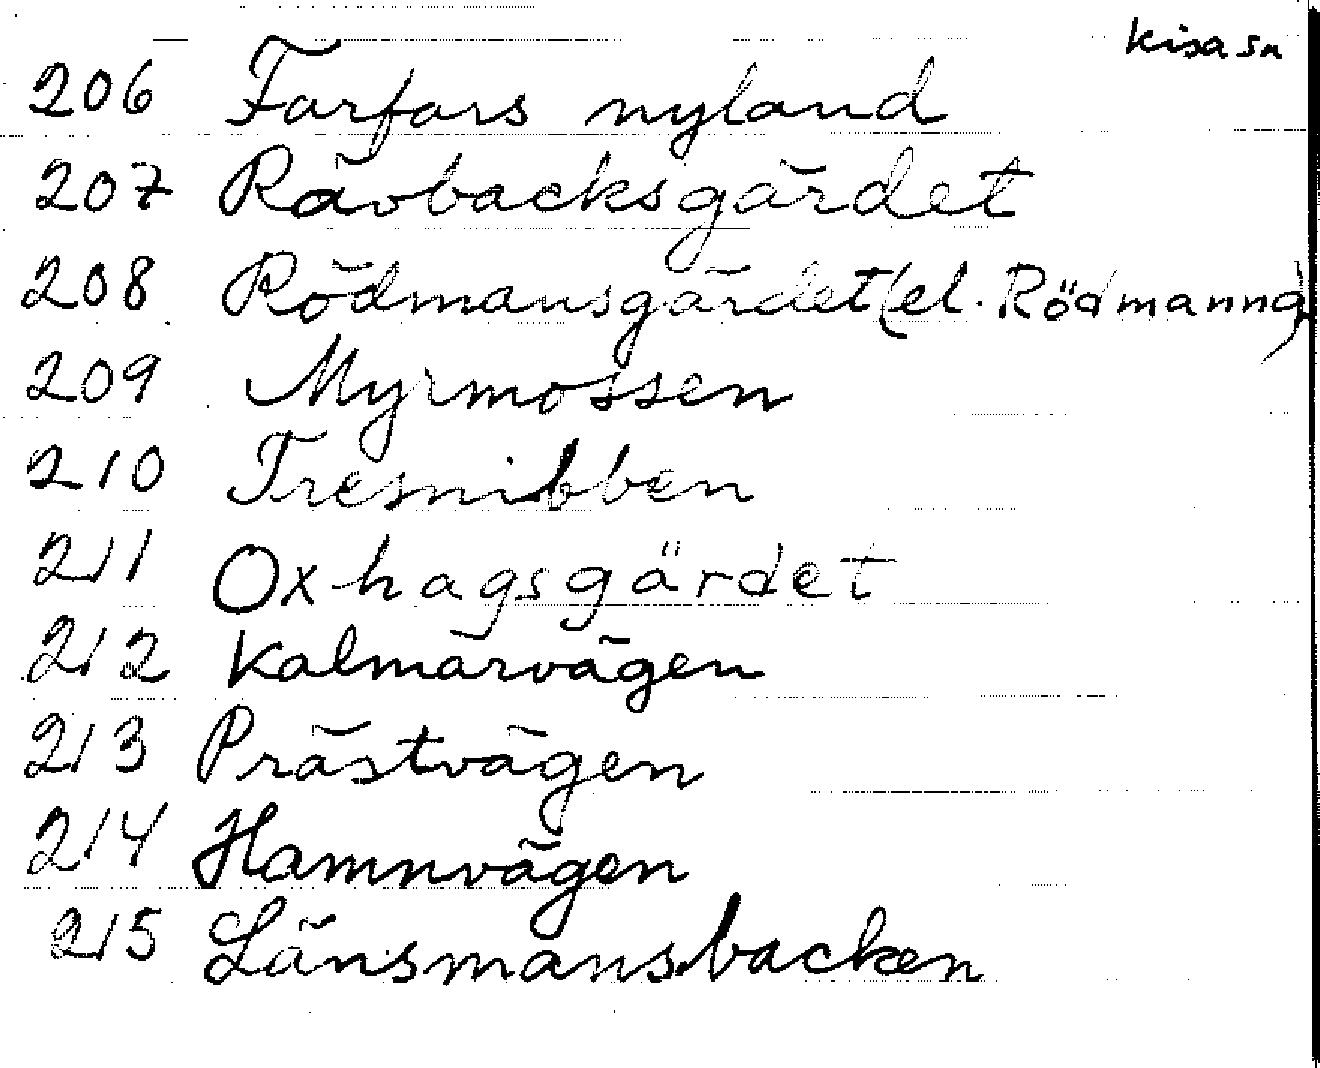 Kisa sn
206 Farfars nyland
207 Rävbacksgärdet
208 Rödmansgärdet (el. Rödmanna)
209 Myrmossen
210 Tresnibben
211 Oxhagsgärdet
212 Kalmarvägen
213 Prästvägen
214 Hamnvägen
215 Länsmansbacken